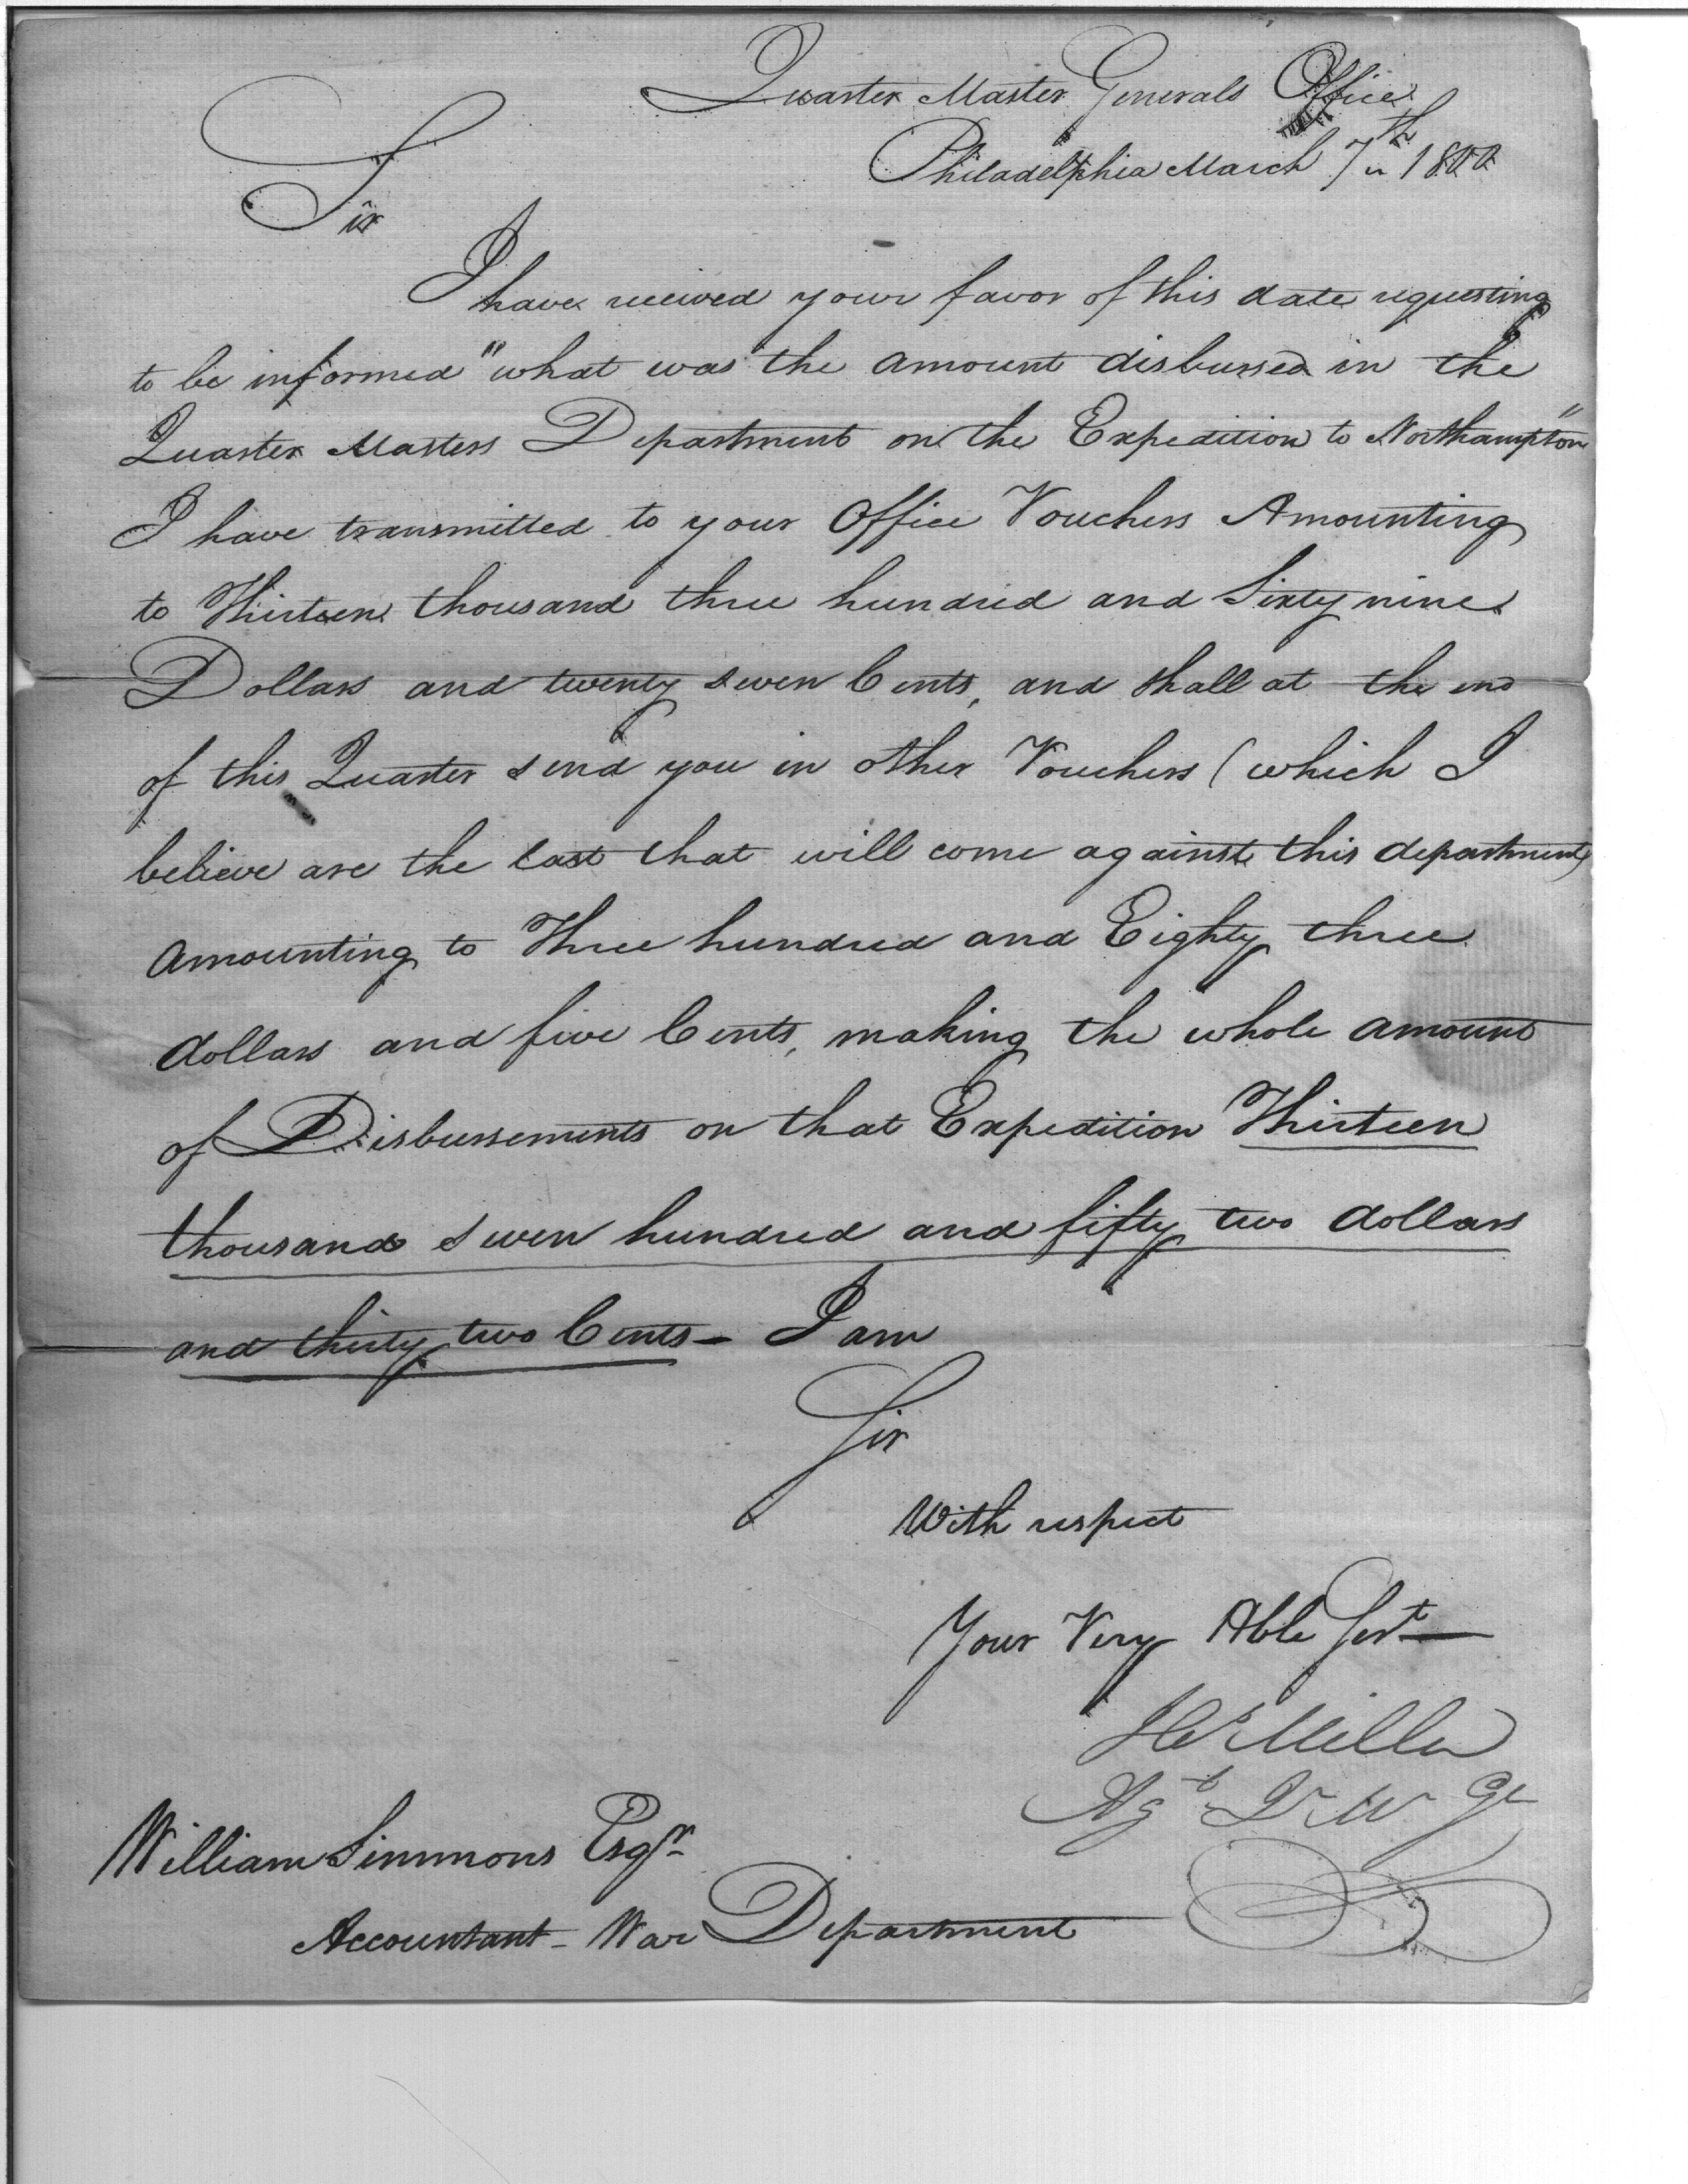 Quarter Master Generals Office
Philadelphia March 7th 1800
Sir
I have received your favor of this date requesting
to be informed "what was the amount disbursed in the
Quarter Masters Department on the Expedition to Northampton"
I have transmitted to your Office Vouchers Amounting
to Thirteen thousand three hundred and Sixty nine
Dollars and twenty seven Cents, and shall at the end
of this Quarter send you in other Vouchers (which I
believe are the last that will come against this department)
amounting to Three hundred and Eighty three
dollars and five Cents, making the whole amount
of Disbursements on that Expedition Thirteen
thousand seven hundred and fifty two dollars
and thirty two Cents - I am
Sir
With respect
Your Very Hble Servt
Hy Miller
Agt Qr Mr Gl
William Simmons Esqr
Accountant - War Department